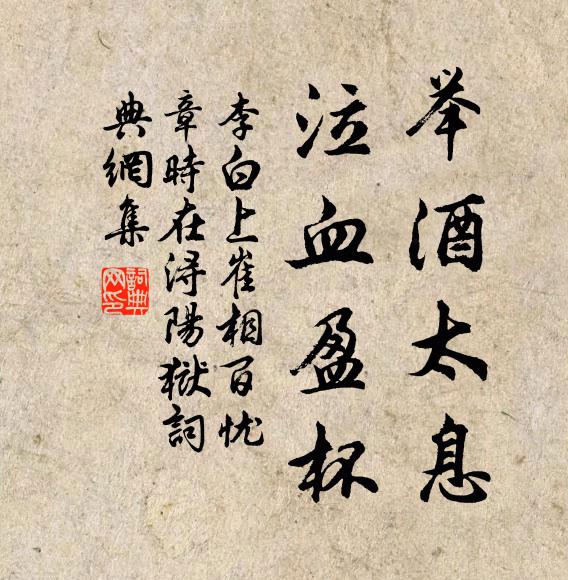 举酒太息
泣血盈杯
李白上崔相百忧
章時在浔陽獄詞
典網集
詞典网印